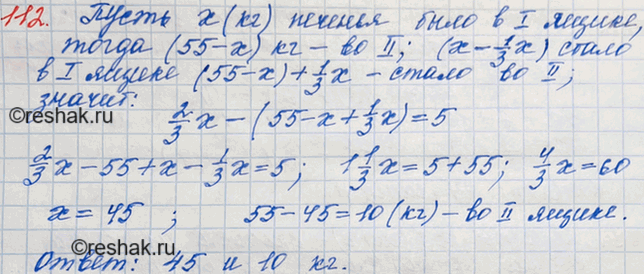 112. Пусть x (кг) печенья было в I ящике,
тогда (55-x) кг - во II; (x - 1/3 x) стало
в I ящике (55-x) + 1/3 x - стало во II;
значит:
©reshak.ru
2/3 x - (55 - x + 1/3 x) = 5
2/3 x - 55 + x - 1/3 x = 5; 1 1/3 x = 5 + 55; 4/3 x = 60
x = 45 ; 55 - 45 = 10 (кг) - во II ящике.
©reshak.ru
Ответ: 45 и 10 кг.